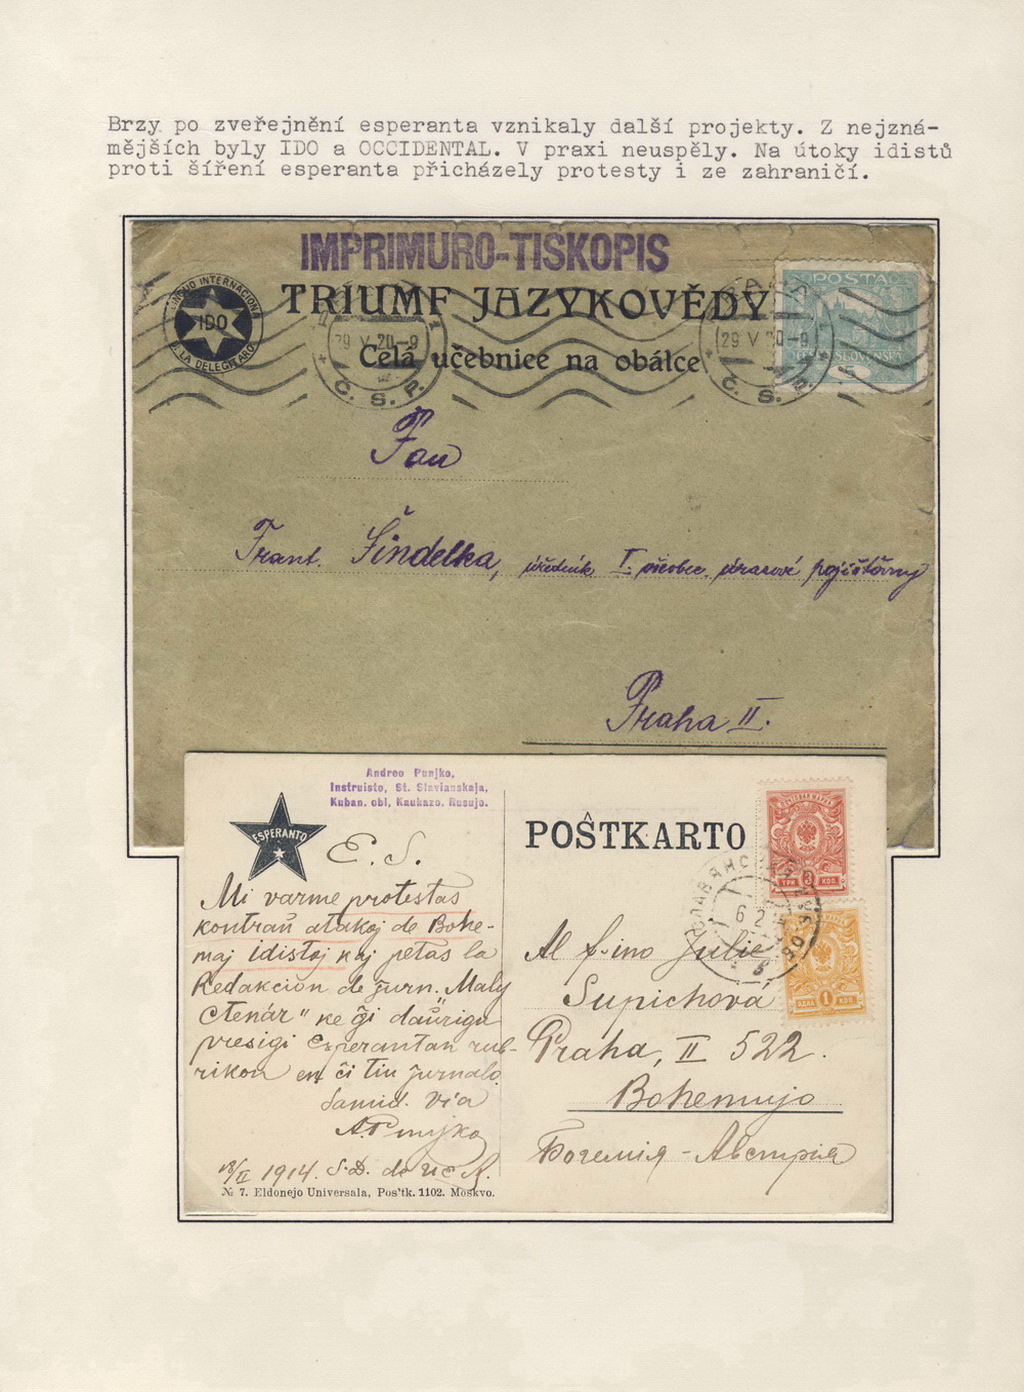 Brzy po zveřejnění esperanta vznikaly další projekty. Z nejzná-
mějších byly IDO a OCCIDENTAL. V praxi neuspěly. Na útoky idistů
proti šíření esperanta přicházely protesty i ze zahraničí.
IMPRIMURO-TISKOPIS
LINGUO INTERNACIONA
IDO
LA DELEGITARO
TRIUMF JAZYKOVĚDY
Celá učebnice na obálce
29 V 20-9
Č. S. P.
29 V 20-9
Č. S. P.
POŠTA
ČESKOSLOVENSKÁ
Pan
Frant. Šindelka, úředník I. všeobec. úrazové pojišťovny
Praha II.
Andreo Punjko,
Instruisto, St. Slavianskaja,
Kuban. obl, Kaukazo. Rusujo.
ESPERANTO
E. S.
Mi varme protestas
kontraŭ atakoj de Bohe-
maj idistoj kaj petas la
Redakcion de ĵurn. Malý
Čtenář" ke ĝi daŭrigu
presigi Esperantan rub-
rikon en ĉi tiu ĵurnalo.
Samid. Via
A. Punjko
18/II 1914. S.D. de U.E.A.
№ 7. Eldonejo Universala, Pos'tk. 1102. Moskvo.
POŜTKARTO
ПОЧТОВАЯ МАРКА
ТРИ 3 КОП
ОДНА 1 КОП
6 2
Al f-ino Julie
Supichová
Praha, II 522.
Bohemujo
Богемия - Австрия